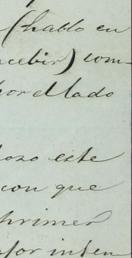 (hablo en
cebir) com-
por el lado
este
con que
primer
por inten